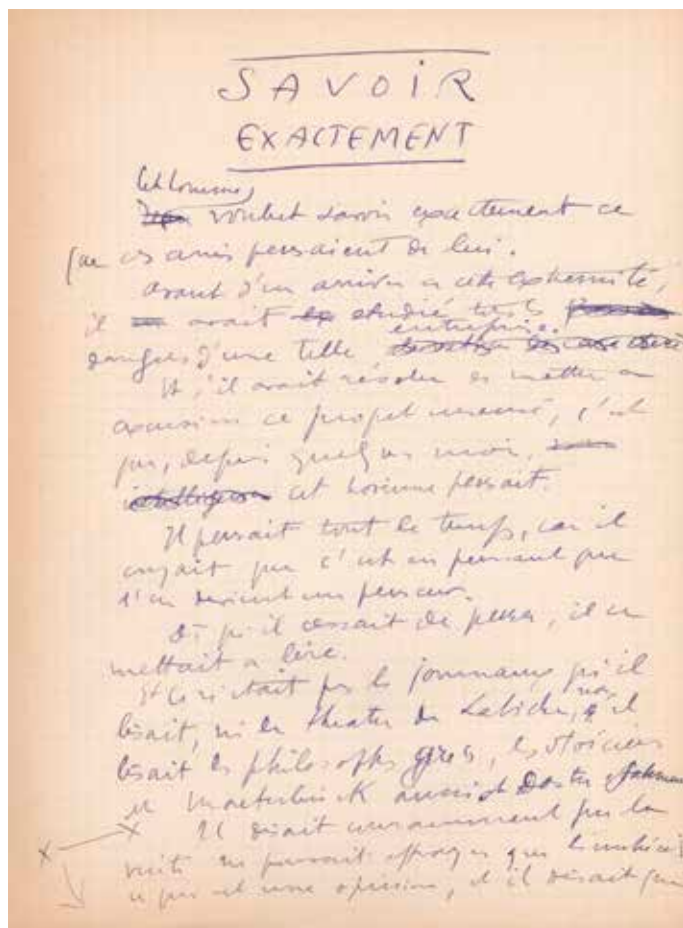 SAVOIR
EXACTEMENT
Cet homme
voulut savoir exactement ce
que ces amis pensaient de lui.
Avant d'en arriver à cette extremité,
il avait étudié tous les
entreprise.
dangers d'une telle
Et s'il avait résolu de mettre en
execution ce projet insensé, c'est
que, depuis quelques mois,
cet homme pensait.
Il pensait tout le temps, car il
croyait que c'est en pensant que
l'on devient un penseur.
Dès qu'il cessait de penser, il se
mettait à lire.
Et ce n'était pas les journaux qu'il
lisait, ni le theatre de Labiche, non, il
lisait les philosophes grecs, les stoïciens
et Maeterlinck aussi et
X Il disait couramment que la
X
verité ne pouvait effrayer que les imbéciles
ce qui est une opinion, et il disait que